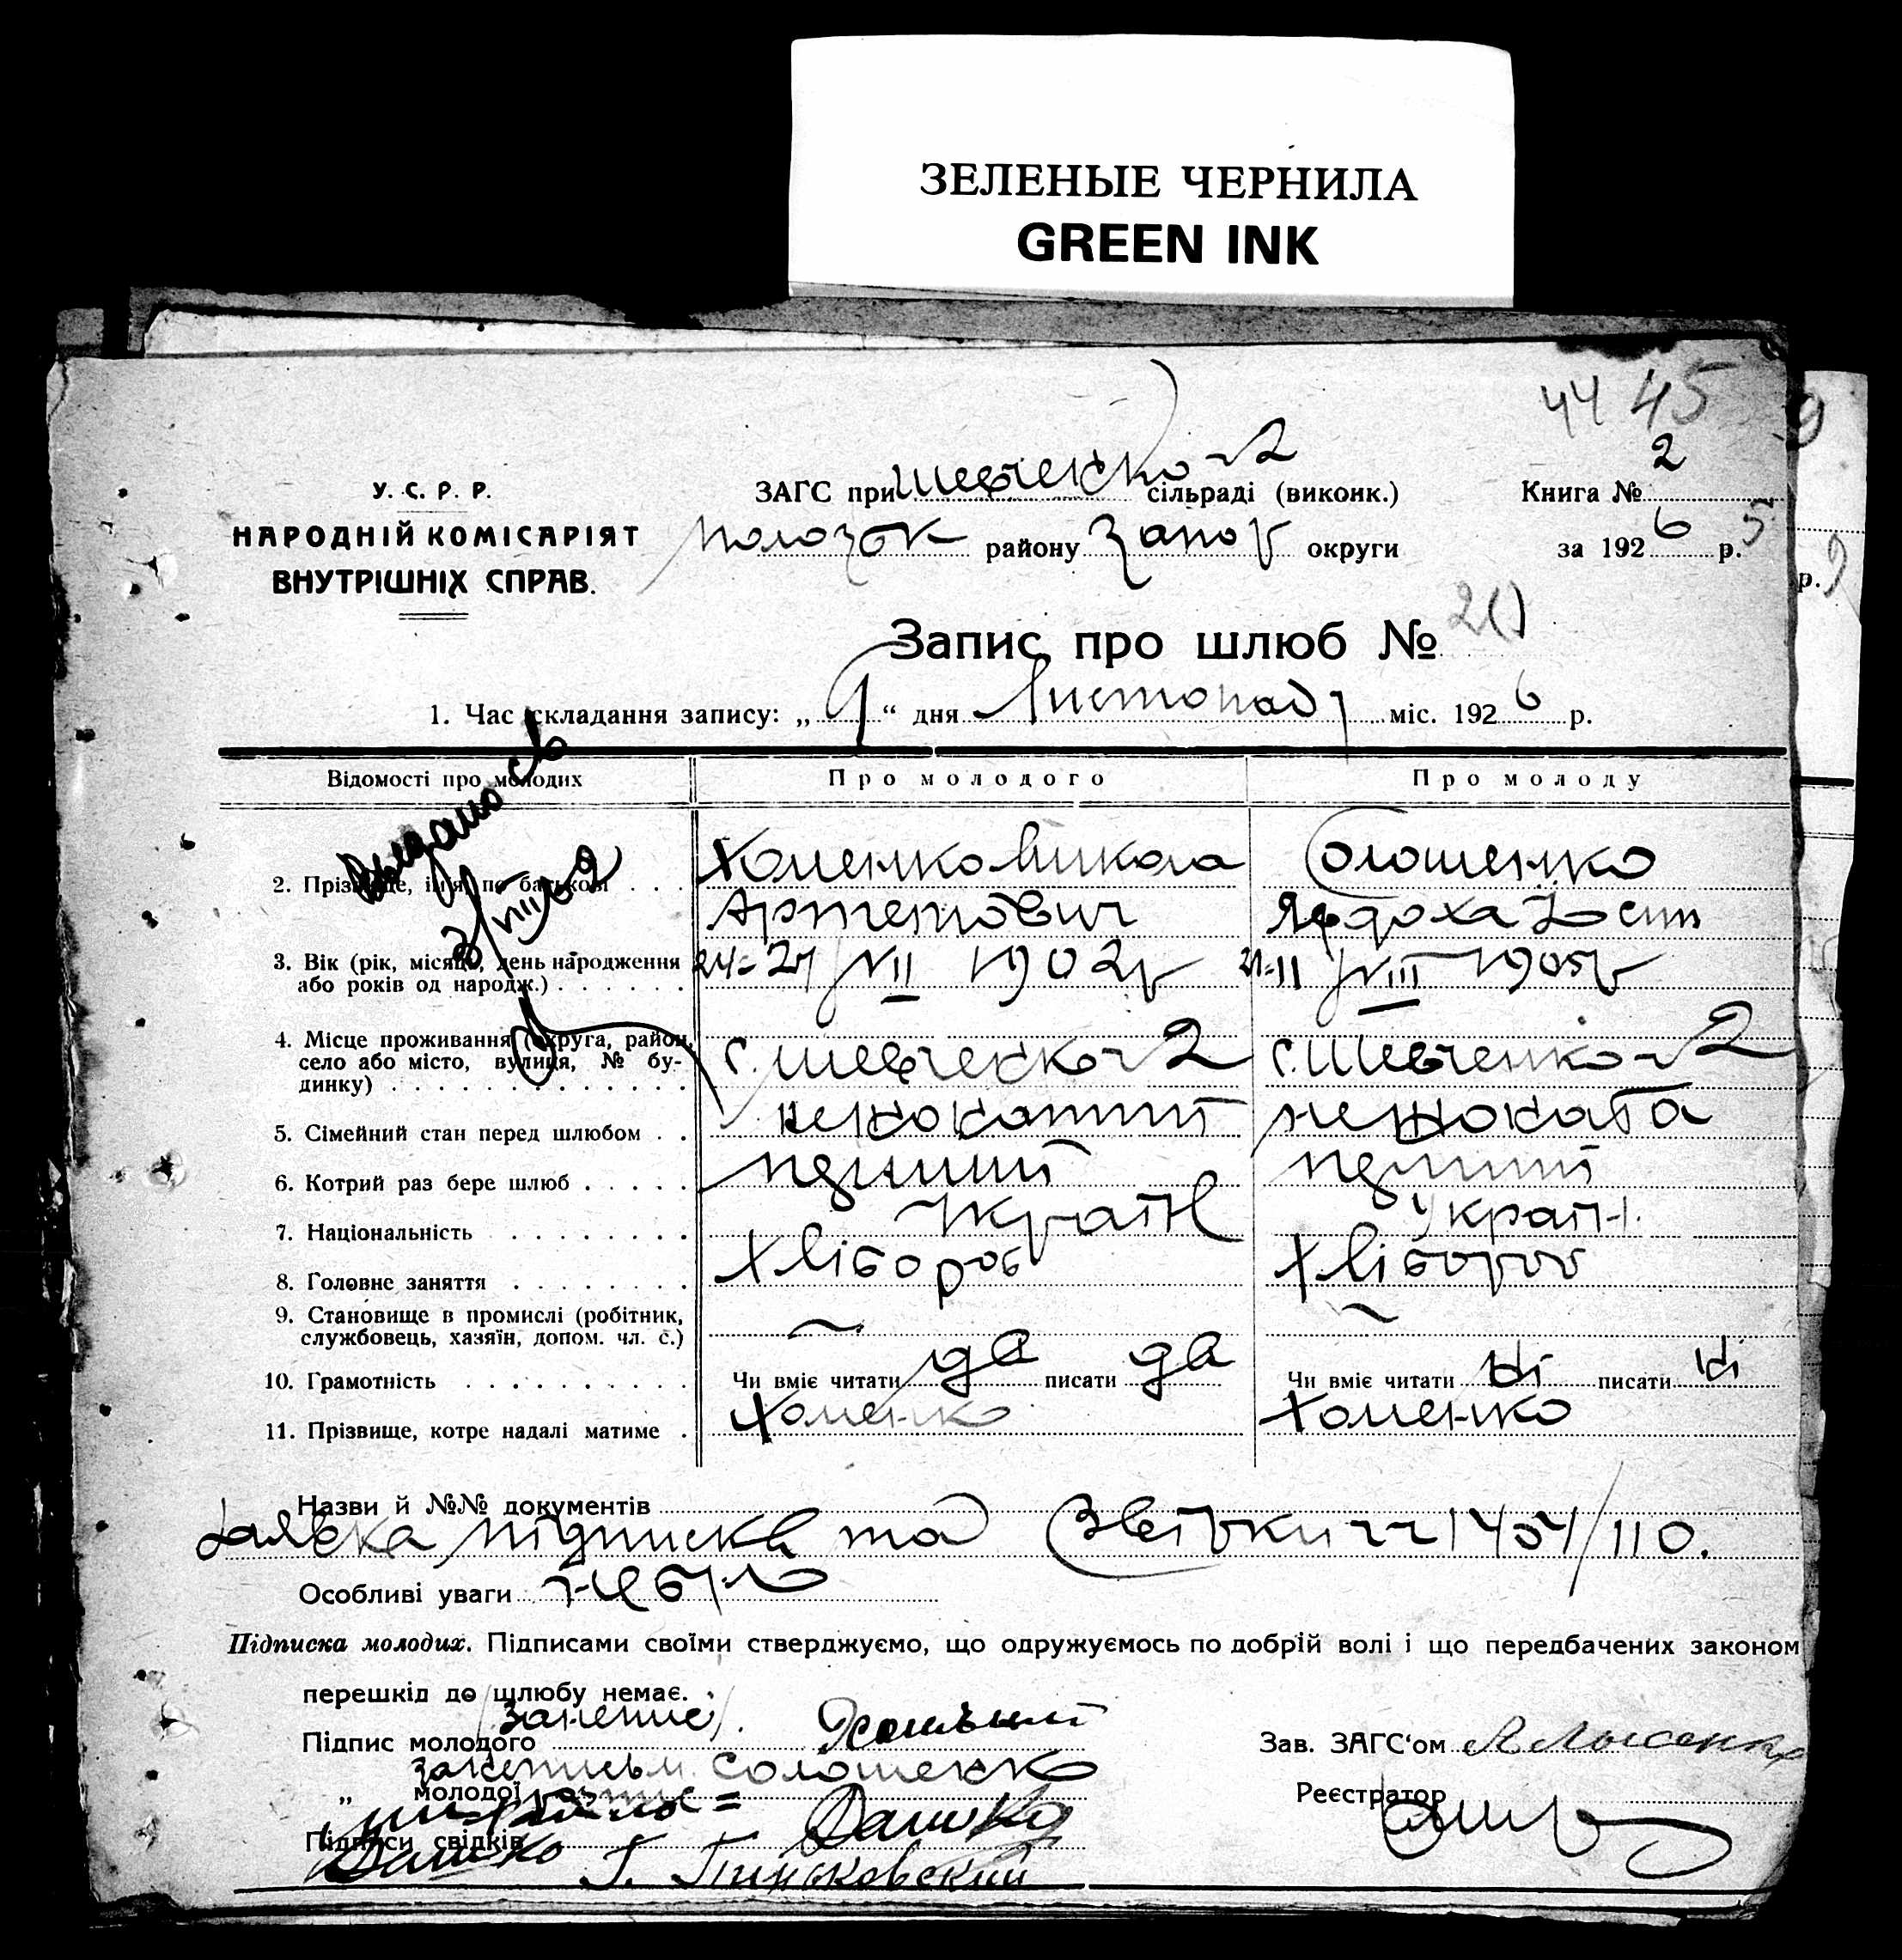 ЗЕЛЕНЫЕ ЧЕРНИЛА
GREEN INK
44 45
У. С. Р. Р.
НАРОДНІЙ КОМІСАРІЯТ
ВНУТРІШНІХ СПРАВ.
ЗАГС при Шевченко 2 сільраді (виконк.)
Книга № 2
району Запор округи
за 1926 р.
Запис про шлюб № 20
1. Час складання запису: „ 9 “ дня Листопад міс. 1926 р.
Відомості про молодих
Про молодого
Про молоду
2. Прізвище, ім'я, по батькові
Хоменко Микола
Артемович
Солошенко
Явдоха Йосип
3. Вік (рік, місяць, день народження
або років од народж.)
VII 1902 р
21-11 VIII 1905 р
4. Місце проживання (округа, район,
село або місто, вулиця, № бу-
динку)
с. Шевченко 2
с. Шевченко 2
5. Сімейний стан перед шлюбом
нежонатий
6. Котрий раз бере шлюб
перший
перший
7. Національність
Україн
Україн.
8. Головне заняття
Хлібороб
Хлібороб
9. Становище в промислі (робітник,
службовець, хазяїн, допом. чл. с.)
10. Грамотність
Чи вміє читати да писати да
Чи вміє читати ні писати ні
11. Прізвище, котре надалі матиме
Хоменко
Хоменко
Назви й №№ документів
Заявка підписка та
110.
Особливі уваги
Підписка молодих. Підписами своїми стверджуємо, що одружуємось по добрій волі і що передбачених законом
перешкід до шлюбу немає.
Підпис молодого
„ молодої
Солошенко
Підписи свідків
Дашко
Дашко
Зав. ЗАГС'ом
Реєстратор